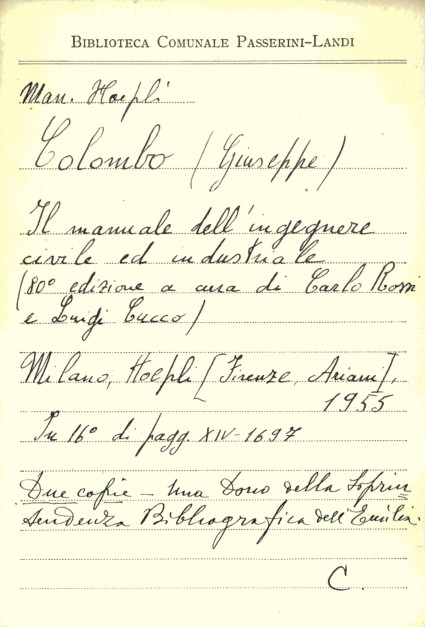 BIBLIOTECA COMUNALE PASSERINI-LANDI
Man. Hoepli
Colombo (Giuseppe)
Il manuale dell'ingegnere
civile ed industriale
(80° edizione a cura di Carlo Rossi
e Luigi Cucco)
Milano, Hoepli [Firenze, Ariani],
1955
In 16° di pagg. XIV-1697
Due copie - Una Dono della Soprin
tendenza Bibliografica dell'Emilia.
C.